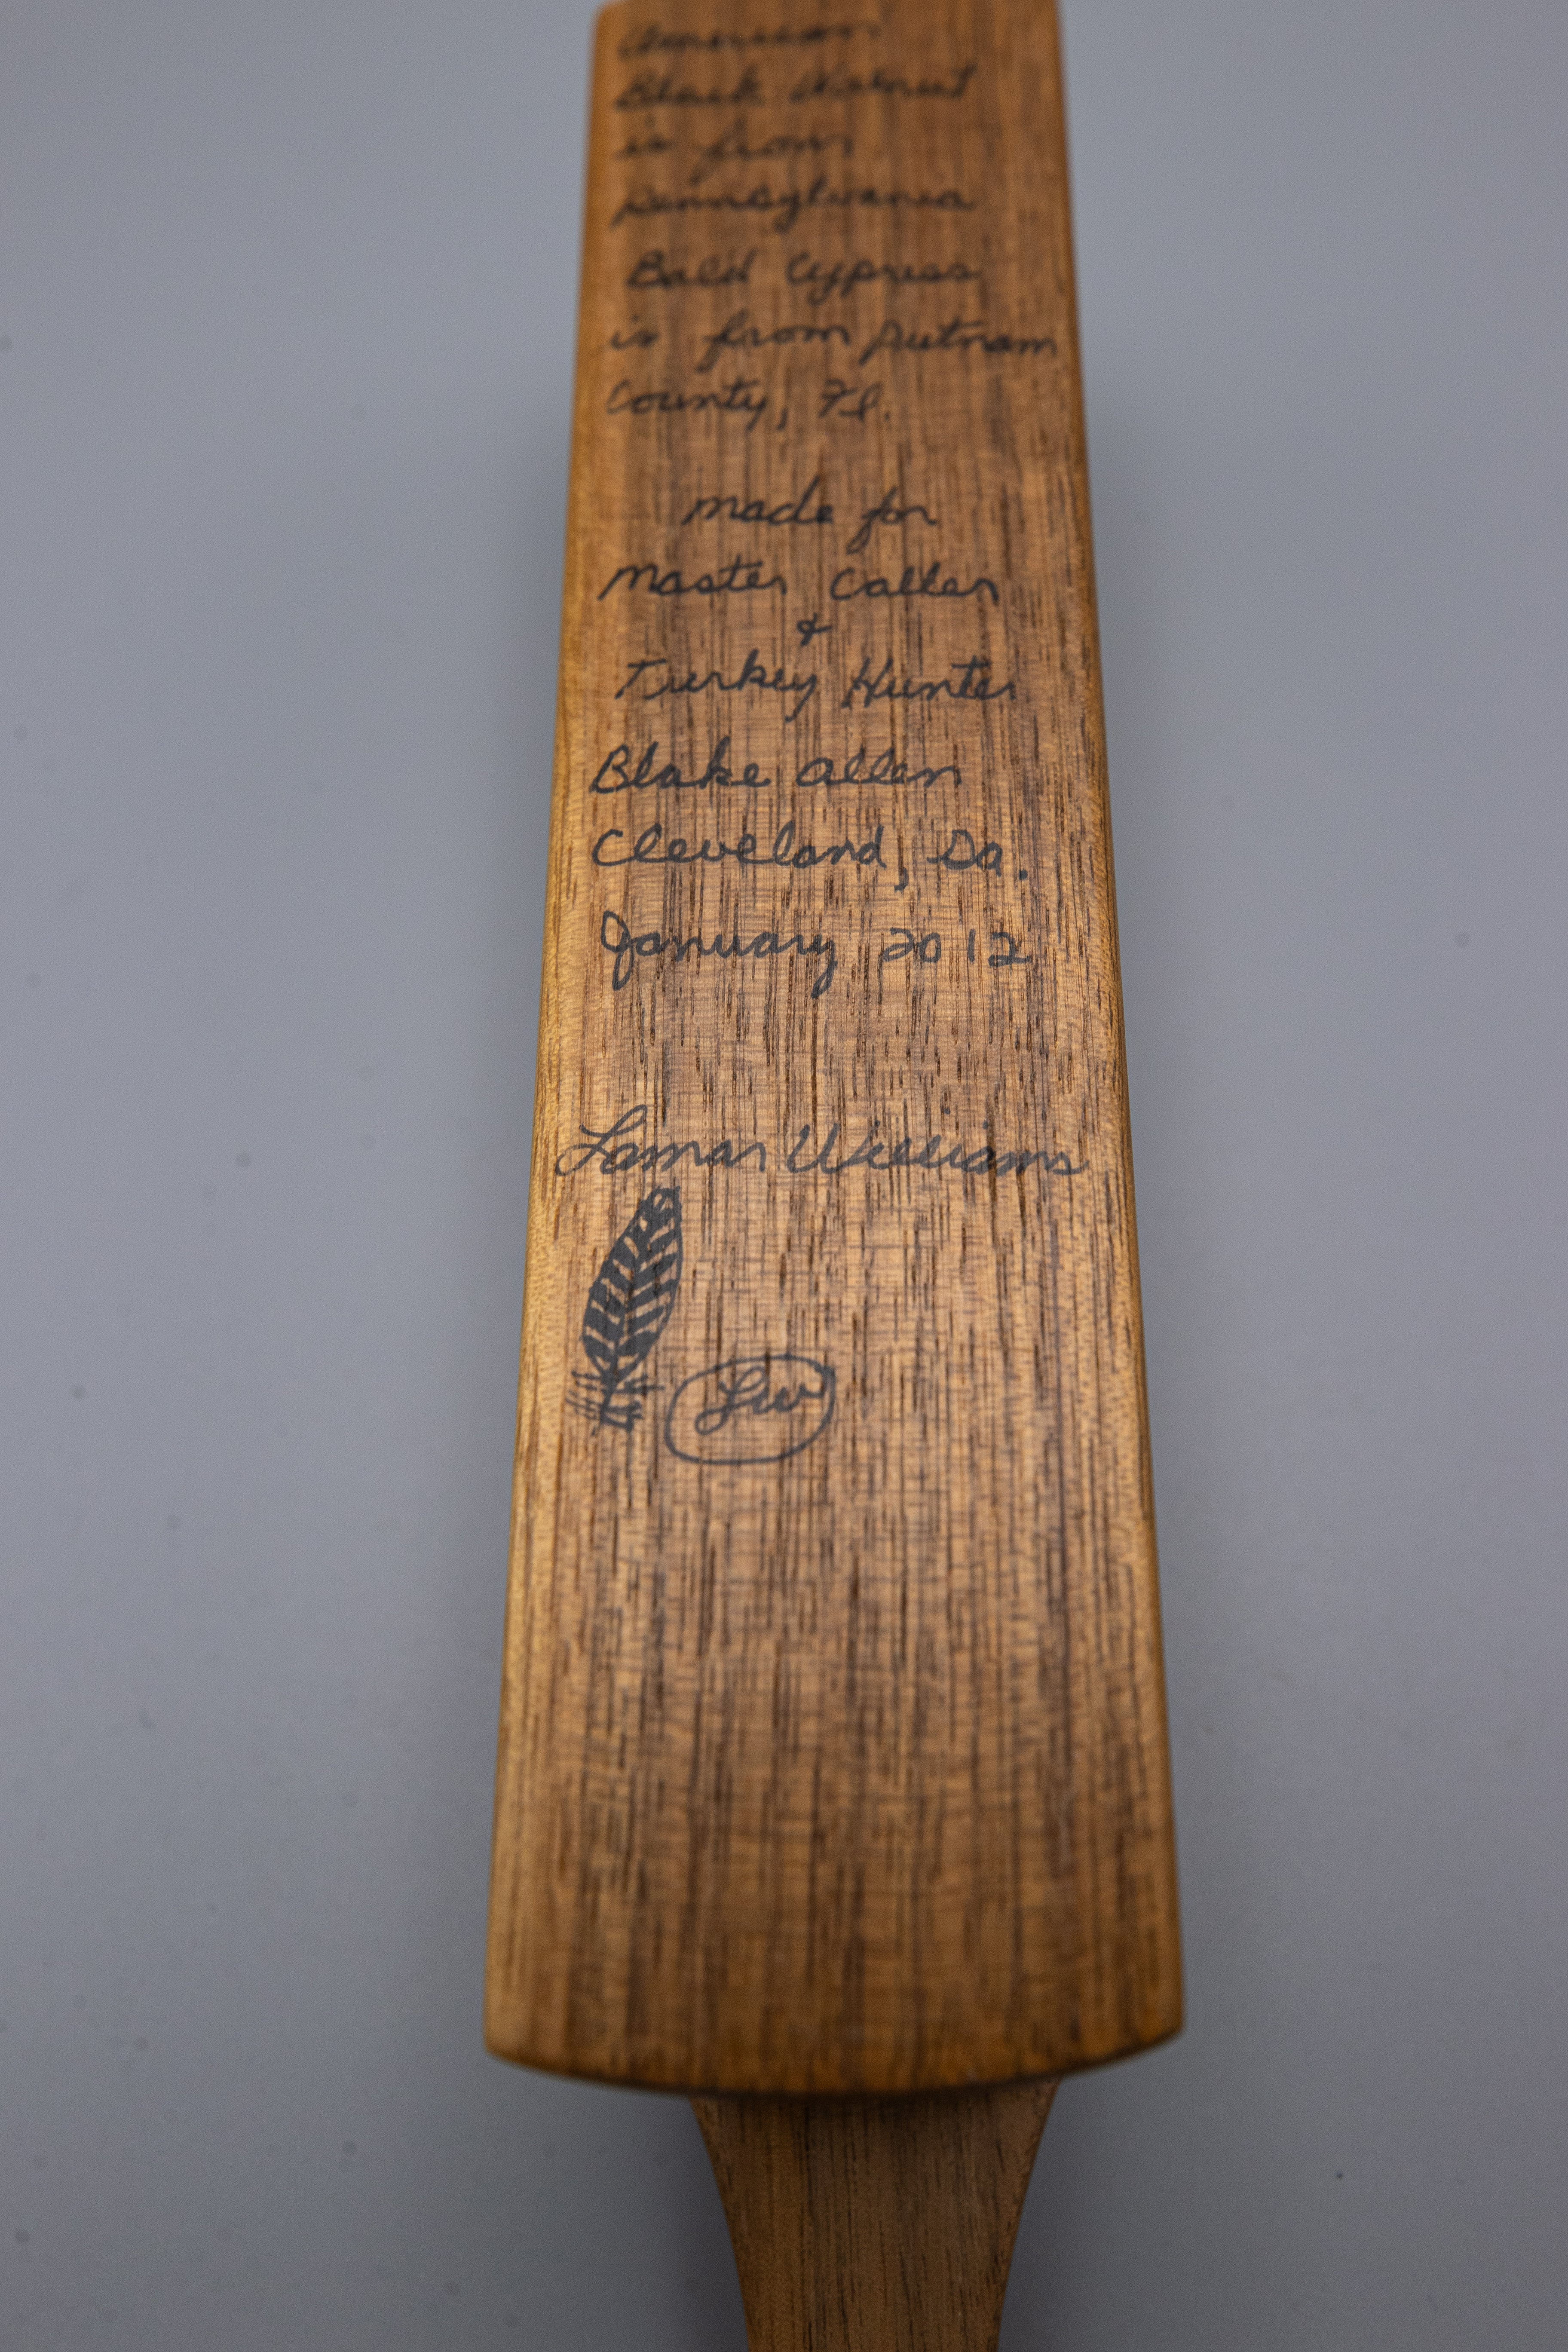 American
Black Walnut
is from
Pennsylvania
Bald Cypress
is from Putnam
County, Fl.
made for
Master Caller
&
Turkey Hunter
Blake Allen
Cleveland, Ga.
January 2012
Lamar Williams
LW